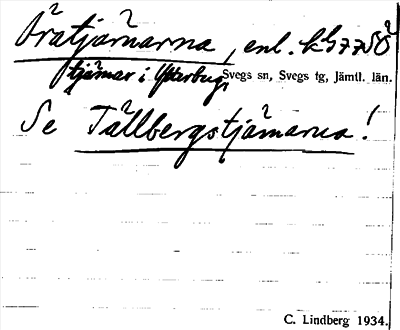 Öratjärnarna, enl. k 577 SÖ
tjärnar i Ytterberg, Svegs sn, Svegs tg, Jämtl. län.
Se Tällbergstjärnarna!
C. Lindberg 1934.